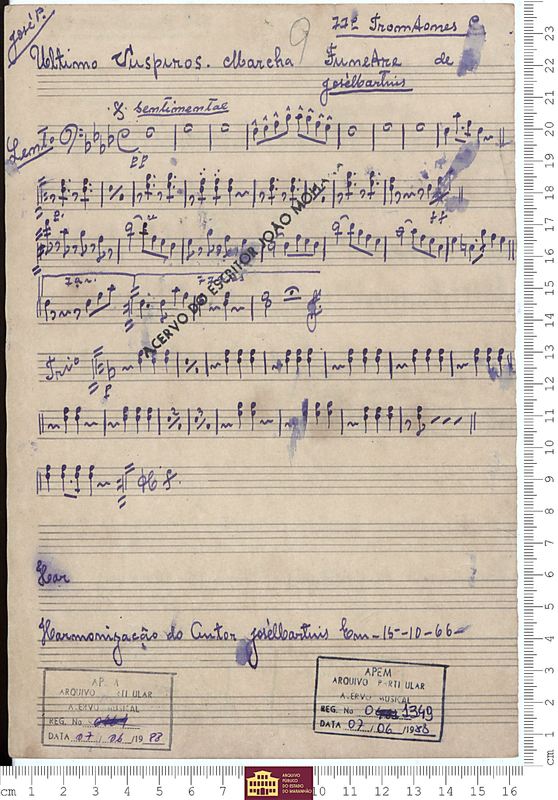 José P.
IIº Trombones
9
Ultimo Suspiros. Marcha Funebre de
José Martins
Lento
sentimental
pp
p.
ff
1ª
2ª
ACERVO DO ESCRITOR JOÃO MOHA
Trio
p
Har
Harmonização do Autor José Martins Em-15-10-66-
APEM
ARQUIVO PARTI ULAR
ACERVO MUSICAL
REG. No
DATA 07 / 06 / 1988
APEM
ARQUIVO PARTI ULAR
ACERVO MUSICAL
REG. No 1349
DATA 07 / 06 / 1988
ARQUIVO
PÚBLICO
DO ESTADO
DO MARANHÃO
cm 1 2 3 4 5 6 7 10 11 12 13 14 15 16
cm 1 2 3 4 5 6 7 8 9 10 11 12 13 14 15 16 17 18 19 20 21 22 23